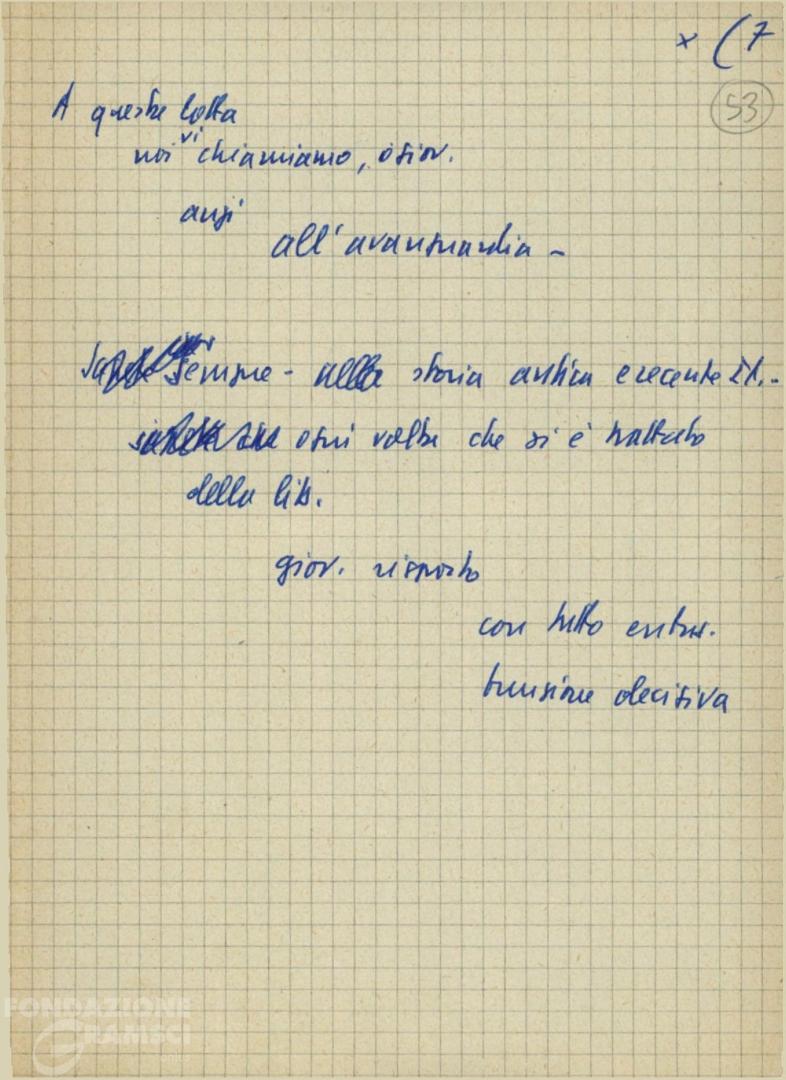 x (7
53
A queste lotta
noi vi chiamiamo, o giov.
anzi
all'avanguardia -
sempre - nella storia antica e recente It. -
ogni volta che si è trattato
della lib.
giov. risposto
con tutto entus.
funzione decisiva
FONDAZIONE
GRAMSCI